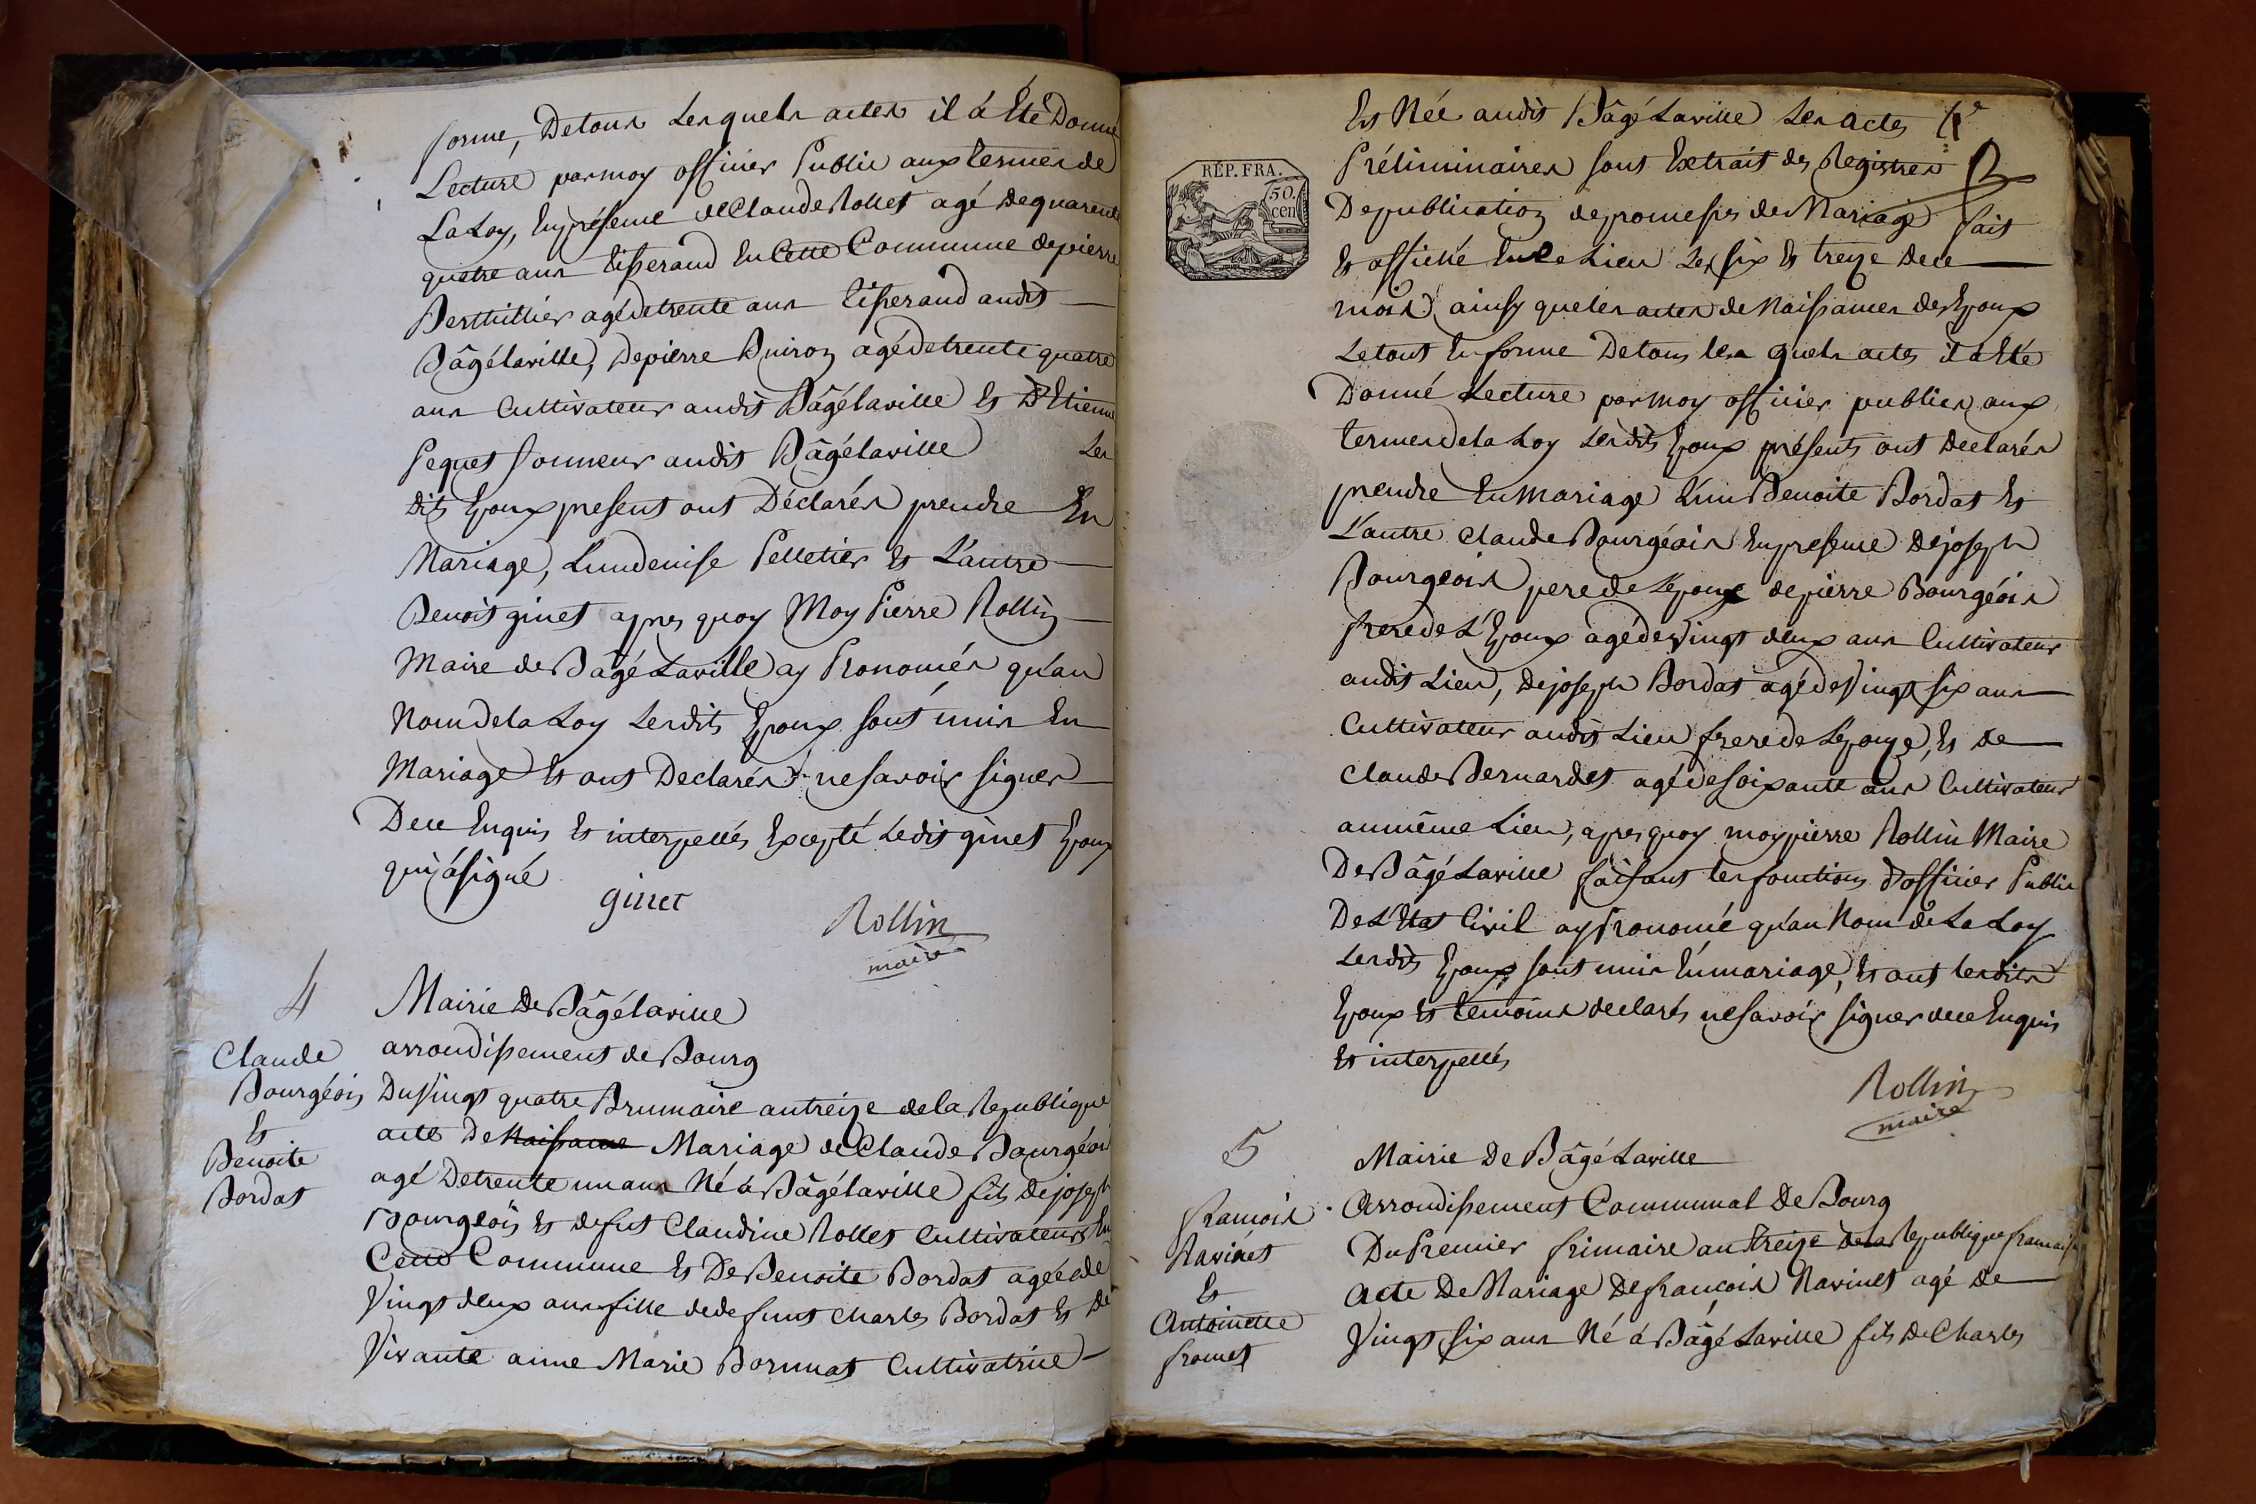 forme, Detous Lesquels actes il á Eté Donné
Lecture parmoy officier Public aux termes de
LaLoy, Enprésence deClaude Rollet agé Dequarente
quatre ans tisserand En Cette Commune depierre
Berthillier agédetrente ans tisserand audit
Bâgélaville, Depierre Buiron agédetrente quatre
ans Cultivateur audit Bâgélaville Et D'Etienne
Pequet Sonneur audit Bâgélaville Les
dits Epoux present ont Déclarés prendre En
Mariage, L'undenise Pelletier Et L'autre
Benoit ginet apres quoy Moy Pierre Rollin
Maire de Bâgé Laville ay Prononcés qu'au
Nom dela Loy Lesdits Epoux sont unis En
Mariage Et ont Declarés nesavoir signer
Dece Enquis Et interpellés Excepté Ledit ginet Epoux
qui ásigné
ginet
Rollin
maire
4
Claude
Bourgéois
Et
Benoite
Bordat
Mairie De Bâgélaville
arrondissement de Bourg
Duvingt quatre Brumaire antreize dela Republique
acte De Naissance Mariage deClaude Bourgéois
agé Detrente unans Né á Bâgélaville fils Dejoseph
Bourgeois Et defut Claudine Rollet Cultivateurs En
Cette Commune Et DeBenoite Bordat agée de
Vingt deux ans fille dedefunt Charles Bordat Et De
Vivante anne Marie Bormat Cultivatrice
REP. FRA.
50
cen
Et Née audit Bâgé Laville Les actes
Préliminaires sont Extrait des Registres
Depublication depromesses de Mariage fait
Et affiché Ence Lieu Les six Et treize Dece
mois ainsy queles actes de Naissances des Epoux
Letout En forme Detous les quels actes il a Eté
Donné Lecture parmoy officier publics aux
termes dela Loy Lesdits Epoux présents ont Declarés
prendre En mariage L'un Benoite Bordat Et
L'autre Claude Bourgéois Enpresence Dejoseph
Bourgeois pere de L'epoux depierre Bourgéois
frere de L'Epoux agédevingt deux ans Cultivateur
audit Lieu, Dejoseph Bordat agédeVingt six ans
Cultivateur audit Lieu frere de Lepouze, Et de
Claude Bernardet agédesoixante ans Cultivateur
aumême Lieu, apres quoy moypierre Rollin Maire
DeBâgé Laville faisant les fonctions d'officier Public
De L'Etat Civil ay Prononcé qu'au Nom de La Loy
Lesdits Epoux sont unis Enmariage, Et ont lesdits
Epoux Et témoins declarés nesavoir signer dece Enquis
Et interpellés
Rollin
maire
5
francois
Ravinet
Et
Antoinette
fromet
Mairie De Bâgé Laville
Arrondissement Communal De Bourg
Du Premier frimaire an treize dela Republique francaise
Acte De Mariage Defrancois Ravinet agé de
Vingt six ans Né á Bâgé Laville fils De Charles